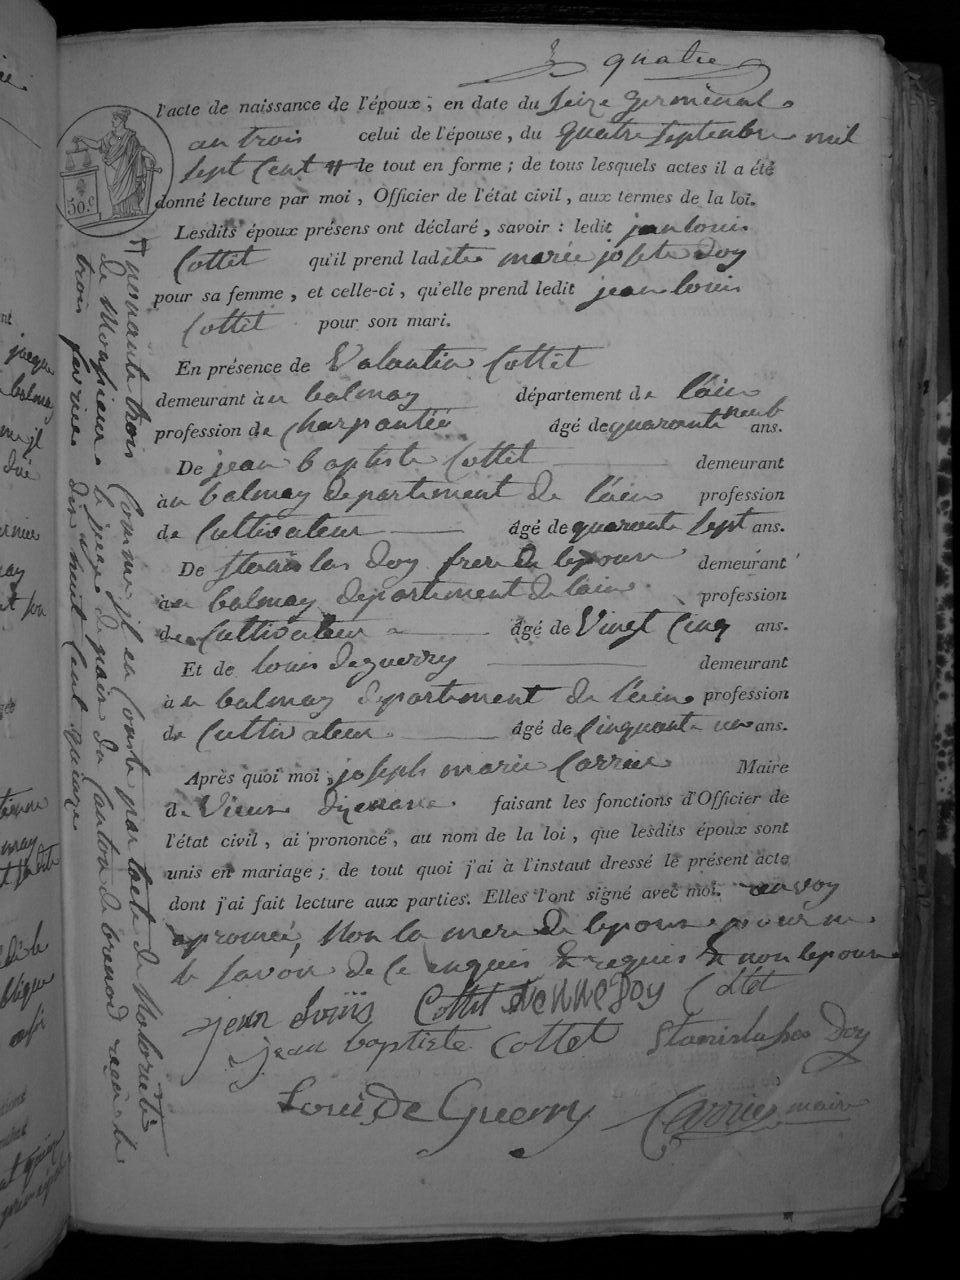 quatre
l'acte de naissance de l'époux; en date du seize germinal
an trois celui de l'épouse, du quatre septenbre mil
sept Cent # le tout en forme; de tous lesquels actes il a été
donné lecture par moi, Officier de l'état civil, aux termes de la loi.
Lesdits époux présens ont déclaré, savoir: ledit jean louis
Cottet qu'il prend ladite marie josepte Doy
pour sa femme, et celle-ci, qu'elle prend ledit jean louis
Cottet pour son mari.
En présence de Valantin Cottet
demeurant à au balmay département de l'ain
profession de Charpantié âgé de quarante neuf ans.
De jean baptiste Cottet demeurant
à au balmay departement de l'ain profession
de Cultivateur âgé de quarante sept ans.
De Stanislas Doy frere de lepouse demeurant
à au balmay departement de lain profession
de Cultivateur âgé de Vingt Cinq ans.
Et de louis deguerry demeurant
à au balmay departement de l'ain profession
de Cultivateur âgé de Cinquante un ans.
Après quoi moi, joseph marie Carrier Maire
de Vieux Dizenave faisant les fonctions d'Officier de
l'état civil, ai prononcé, au nom de la loi, que lesdits époux sont
unis en mariage; de tout quoi j'ai à l'instaut dressé le présent acte
dont j'ai fait lecture aux parties. Elles l'ont signé avec moi.
non la mere de lepouse pour ne
le savoir de ce enquis & requis & non lepouse
jean louis Cottet Doy Cottet
jean baptiste Cottet Stanislas Doy
Louis De Guerry Carrier maire
# nonante trois Comme jl en Conste par lacte de Notorieté
de Monsieur le juge de paix du Canton de brenod reçu le
trois fevrier dix huit Cent quinze
50 c